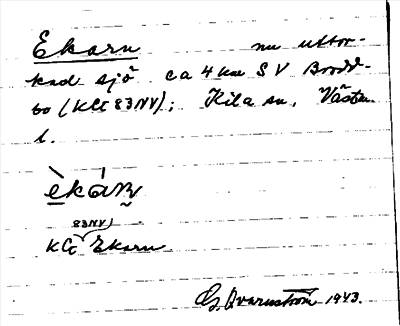 Ekarn nu uttor-
kad sjö ca 4 km SV Brodd-
bo (KCt 83NV); Kila sn, Västm.
l.
èkáṇ
83NV
KCt Ekarn
G. Qvarnström 1943.